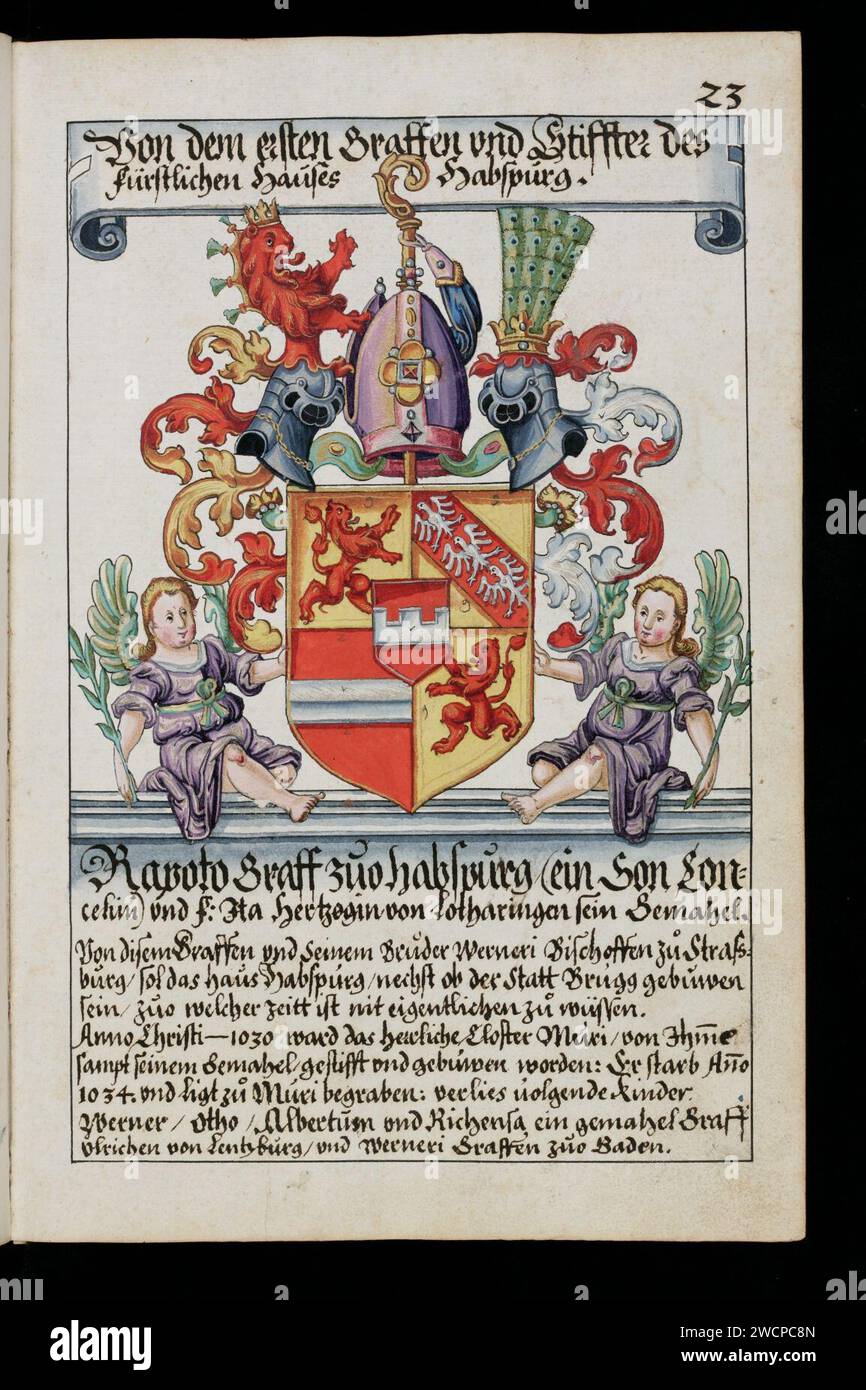 23
Von dem ersten Graffen vnd Stiffter des
fürstlichen Hauses Habspurg.
Rapoto Graff zuo habspurg (ein Son Lon-
celini) vnd F: Ita Hertzogin von Lotharingen sein Gemahel.
Von disem Graffen vnd seinem Bruder Werneri Bischoffen zů Straß-
burg / sol das haus Habspurg / nechst ob der Statt Brugg gebuwen
sein / zuo welcher zeitt ist nit eigentlichen zů wüssen.
Anno Christi — 1030 ward das herrliche Closter Muri / von Ihme
sampt seinem Gemahel / gestifft vnd gebuwen worden: Er starb Año
1034. vnd ligt zů Muri begraben: verlies volgende Kinder
Werner / Otho / Albertum vnd Richensa ein gemahel Graff
Vlrichen von Lentzburg / vnd Werneri Graffen zuo Baden.
alamy
Image ID: 2WCPC8N
www.alamy.com